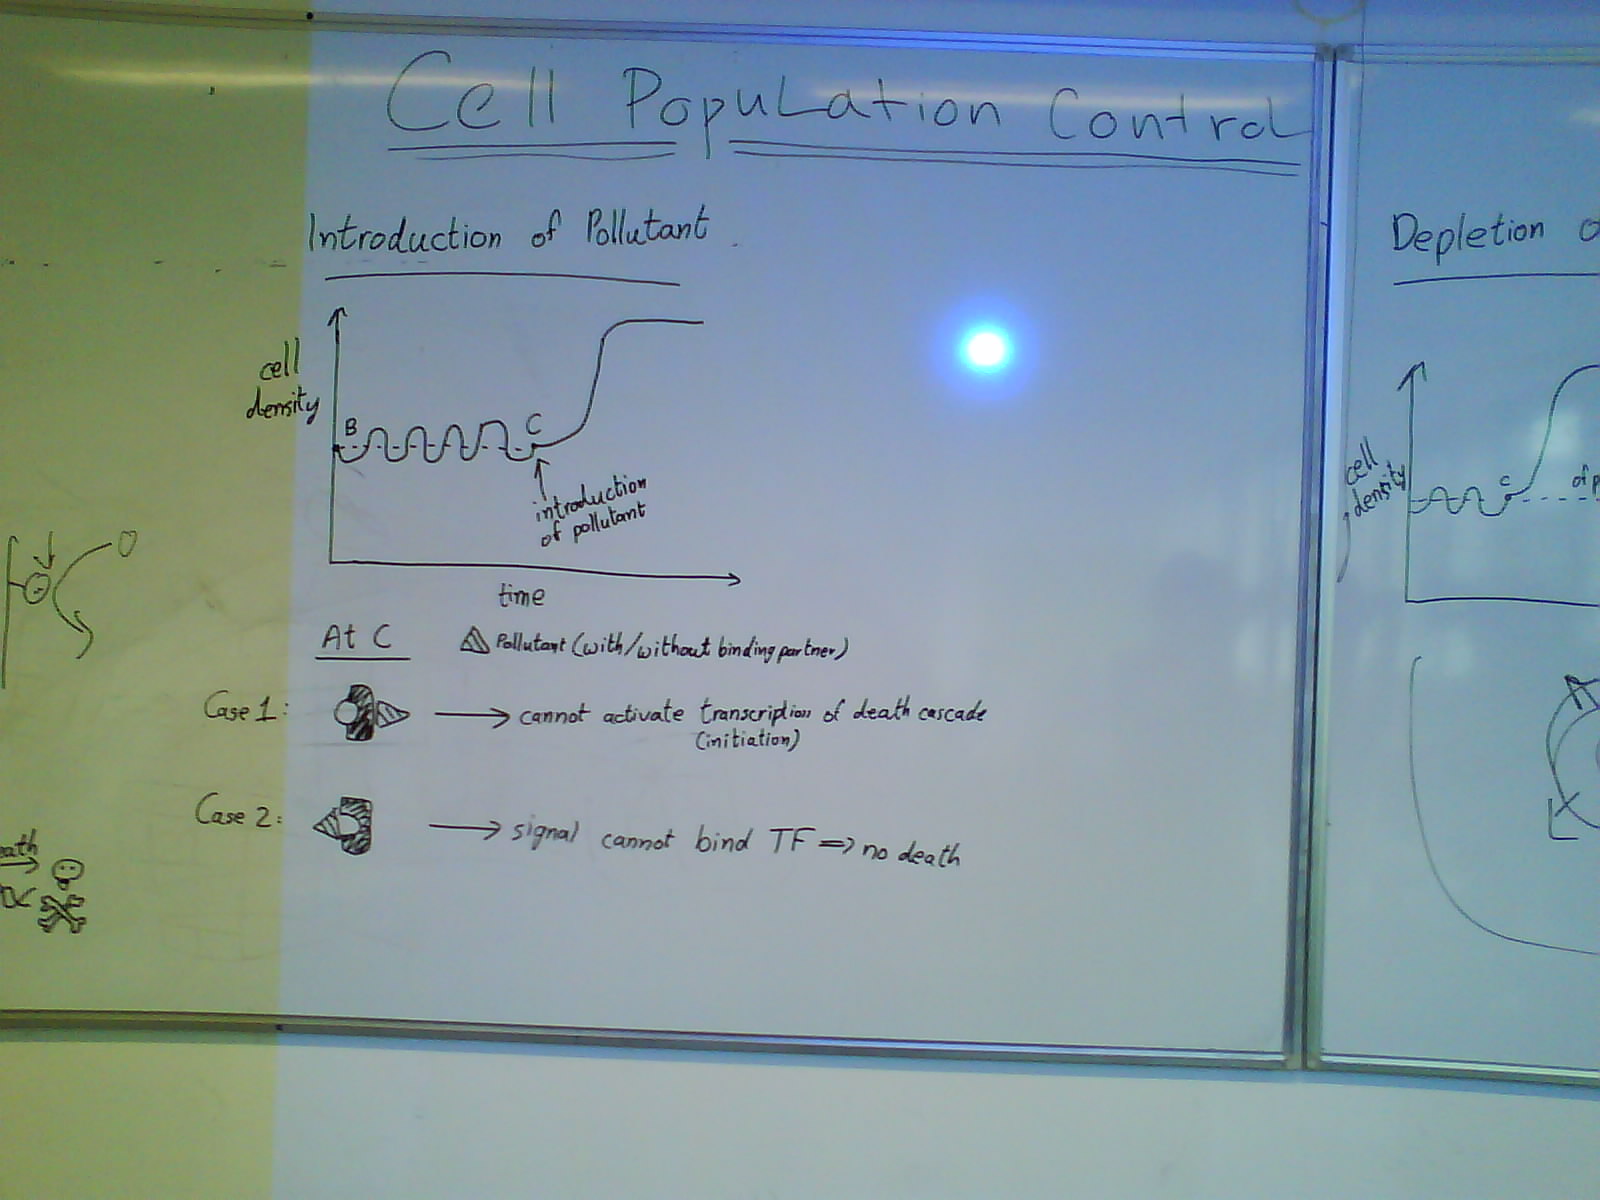 Cell Population Control
Introduction of Pollutant
cell
density
B
C
introduction
of pollutant
time
At C
Pollutant (with/without binding partner)
Case 1:
→ cannot activate transcription of death cascade
(initiation)
Case 2:
→ signal cannot bind TF ⇒ no death
Depletion
cell
density
C